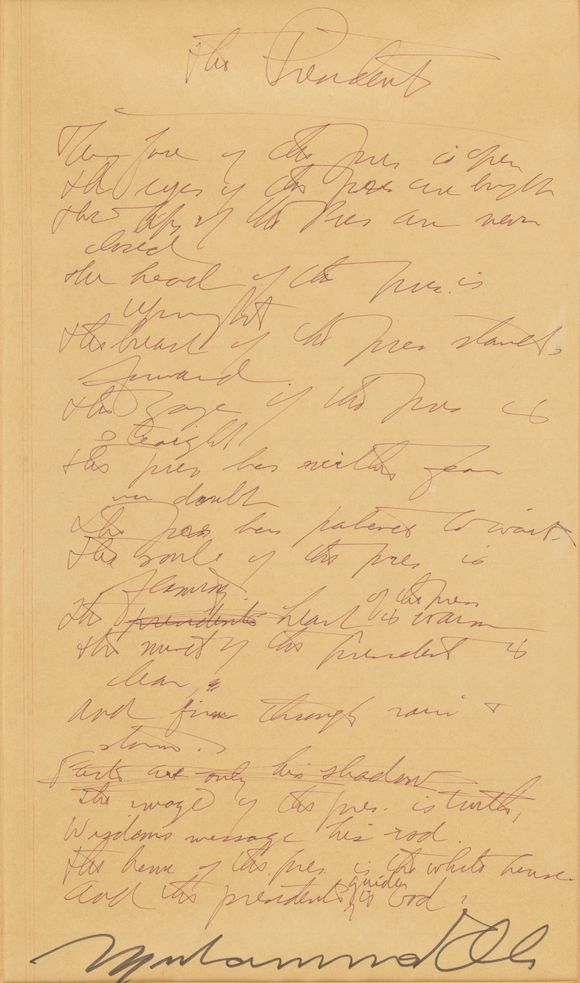 The President
The face of the Pres is open
the eyes of the Pres are bright
the lips of the Pres are never
closed
the head of the pres. is
upright
the breast of the pres stands
forward
the gaze of the pres is
straight
the pres has neither fear
nor doubt
the Pres has patience to wait
the soule of the pres is
flaming.
the presidents heart of the pres is warm
the mind of the president is
clear,
and firm through rain +
storm.
Facts are only his shadow
the image of the pres. is truth,
Wisdoms message his rod.
the home of the pres. is the white house
and the presidents guide is God.
Muhammad Ali